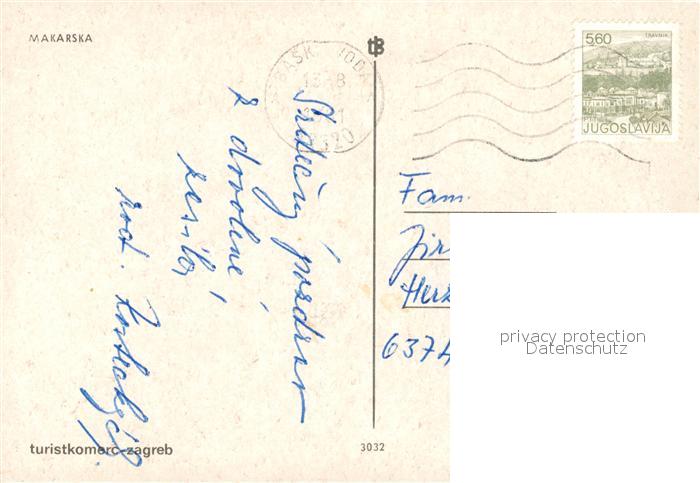 MAKARSKA
tB
BAŠKA VODA
13.8
21320
TRAVNIK
5,60
JUGOSLAVIJA
Srdečný pozdrav
z dovolené
zasílá
rod.
Fam.
Jir
Herz
6374
privacy protection
Datenschutz
turistkomerc-zagreb
3032